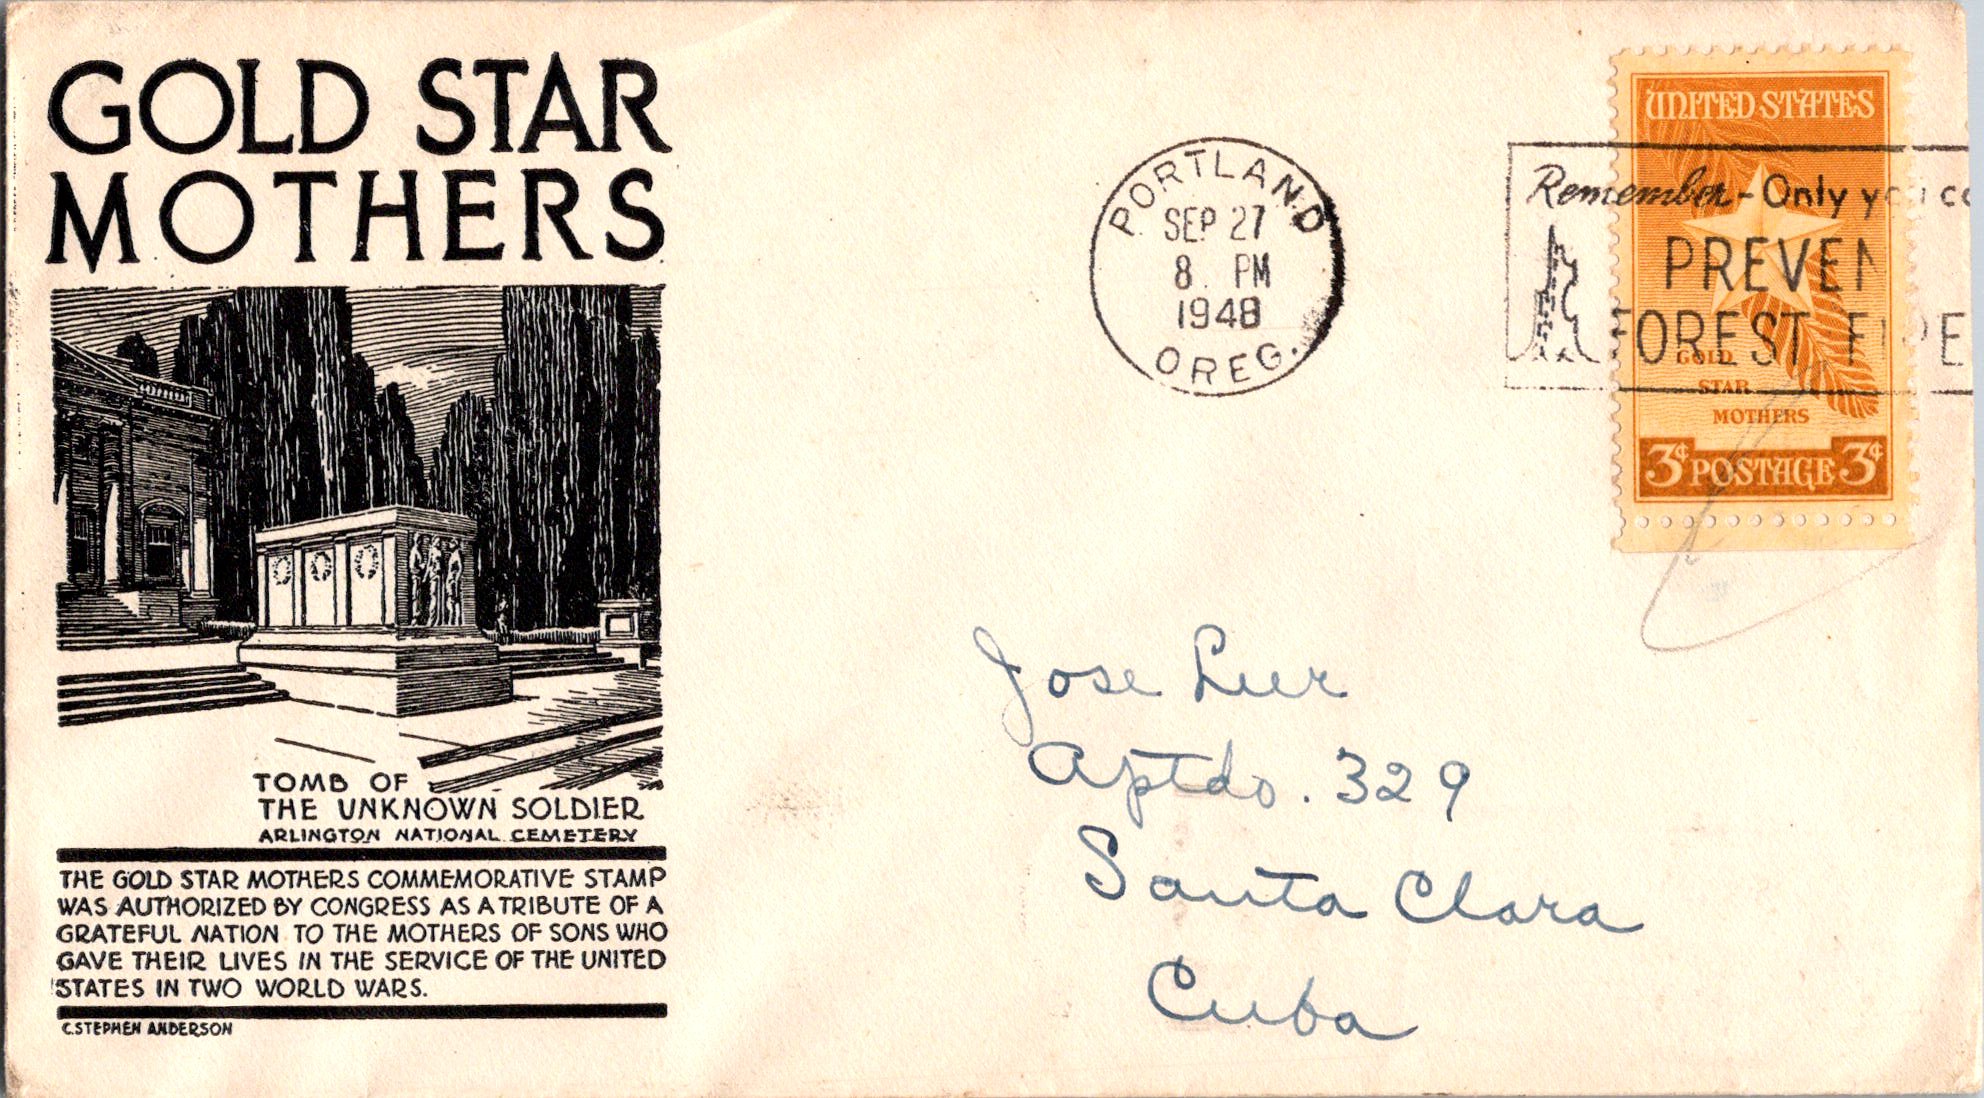 GOLD STAR
MOTHERS
TOMB OF
THE UNKNOWN SOLDIER
ARLINGTON NATIONAL CEMETERY
THE GOLD STAR MOTHERS COMMEMORATIVE STAMP
WAS AUTHORIZED BY CONGRESS AS A TRIBUTE OF A
GRATEFUL NATION TO THE MOTHERS OF SONS WHO
GAVE THEIR LIVES IN THE SERVICE OF THE UNITED
STATES IN TWO WORLD WARS.
C. STEPHEN ANDERSON
PORTLAND
SEP 27
8 PM
1948
OREG.
Remember - Only you
PREVEN
FOREST FIRE
UNITED STATES
GOLD
STAR
MOTHERS
3¢ POSTAGE 3¢
Jose
Aptdo. 329
Santa Clara
Cuba